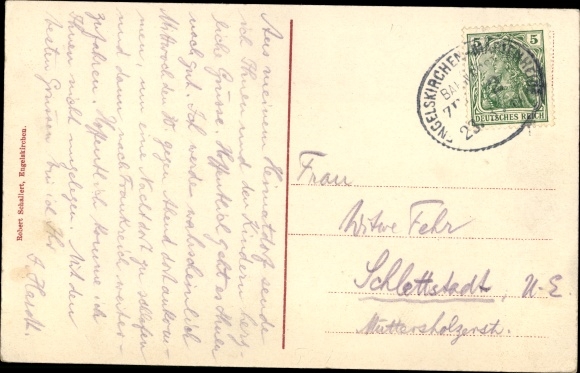 Aus meinem Heimatdorf sende
ich Ihnen und den Kindern herz-
liche Grüsse. Hoffentlich geht es Ihnen
noch gut. Ich werde wahrscheinlich
Mittwoch den 10. gegen Abend dort ankom-
men, um eine Nacht dort zu schlafen
und dann nach Frankreich weiter-
zufahren. Hoffentlich komme ich
Ihnen nicht ungelegen. Mit den
besten Grüssen bin ich Ihr
J. Hardt.
Robert Schallert, Engelskirchen.
5 5
DEUTSCHES REICH
ENGELSKIRCHEN
23
Frau
Witwe Fehr
Schlettstadt, U-E.
Muttersholzerstr.